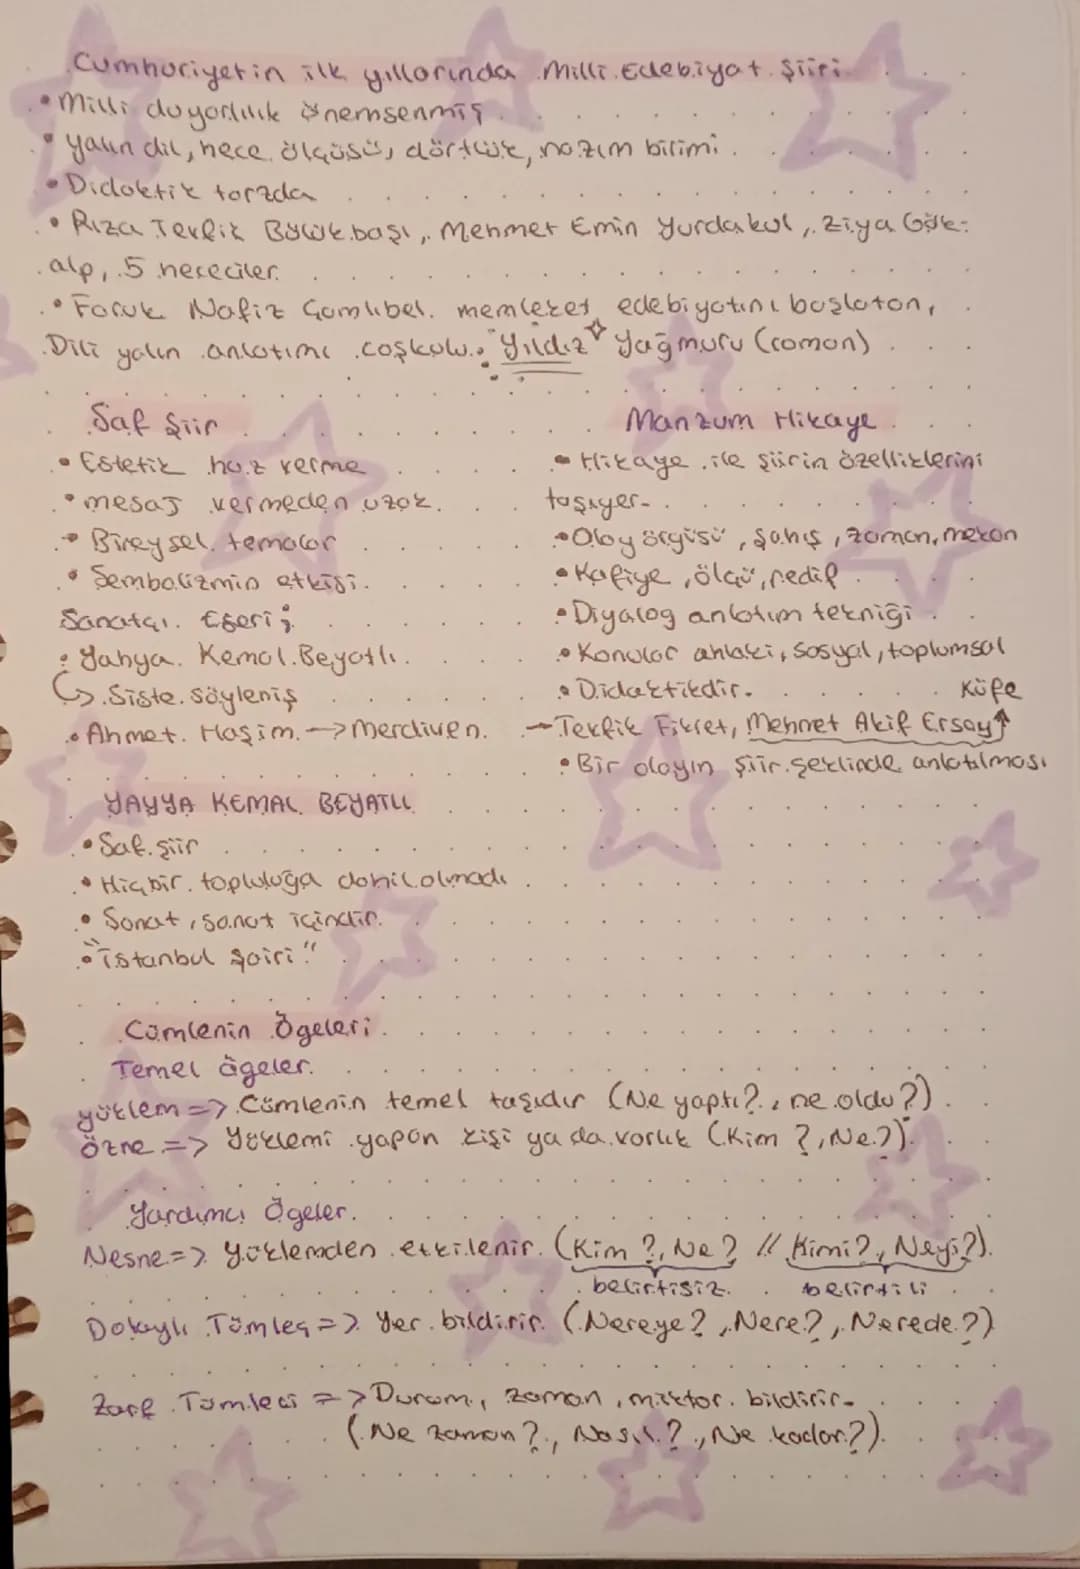 Cumhuriyetin ilk yıllarında Milli Edebiyat Şiiri
• Milli duyarlılık önemsenmiş
• Yalın dil, hece ölçüsü, dörtlük, nazım bilimi
• Didaktik tarzda
• Rıza Tevfik Bölükbaşı, Mehmet Emin Yurdakul, Ziya Gök-
alp, 5 hececiler.
• Faruk Nafiz Çamlıbel memleket edebiyatını başlatan,
Dili yalın anlatımı coşkulu. "Yıldız Yağmuru (roman)
Saf Şiir
• Estetik haz verme
• mesaj vermeden uzak.
• Bireysel temalar
• Sembolizmin etkisi.
Sanatçı Eseri;
• Yahya Kemal Beyatlı
↪ Siste söyleniş
• Ahmet Haşim → Merdiven.
Manzum Hikaye
• Hikaye ile şiirin özelliklerini
taşıyer.
• Olay örgüsü, şahıs, zaman, mekan
• Kafiye, ölçü, redif
• Diyalog anlatım tekniği
• Konular ahlaki, sosyal, toplumsal
• Didaktikdir.
Küfe
→ Tevfik Fikret, Mehmet Akif Ersoy↑
• Bir olayın şiir şeklinde anlatılması
YAYYA KEMAL BEYATLI
• Saf şiir
• Hiçbir topluluğa dahil olmadı
• Sanat, sanat içindir.
• "İstanbul şairi"
Cümlenin Ögeleri
Temel ögeler.
yüklem => Cümlenin temel taşıdır (Ne yaptı?, ne oldu?)
Özne => Yüklemi yapan kişi ya da varlık (Kim?, Ne?)
Yardımcı Ögeler.
Nesne => Yüklemden etkilenir. (Kim?, Ne? // Kimi?, Neyi?).
belirtisiz belirtili
Dolaylı Tümleç => Yer bildirir. (Nereye?, Nere?, Nerede?)
Zarf Tümleci => Durum, zaman, miktar bildirir.
(Ne zaman?, Nasıl?, Ne kadar?).